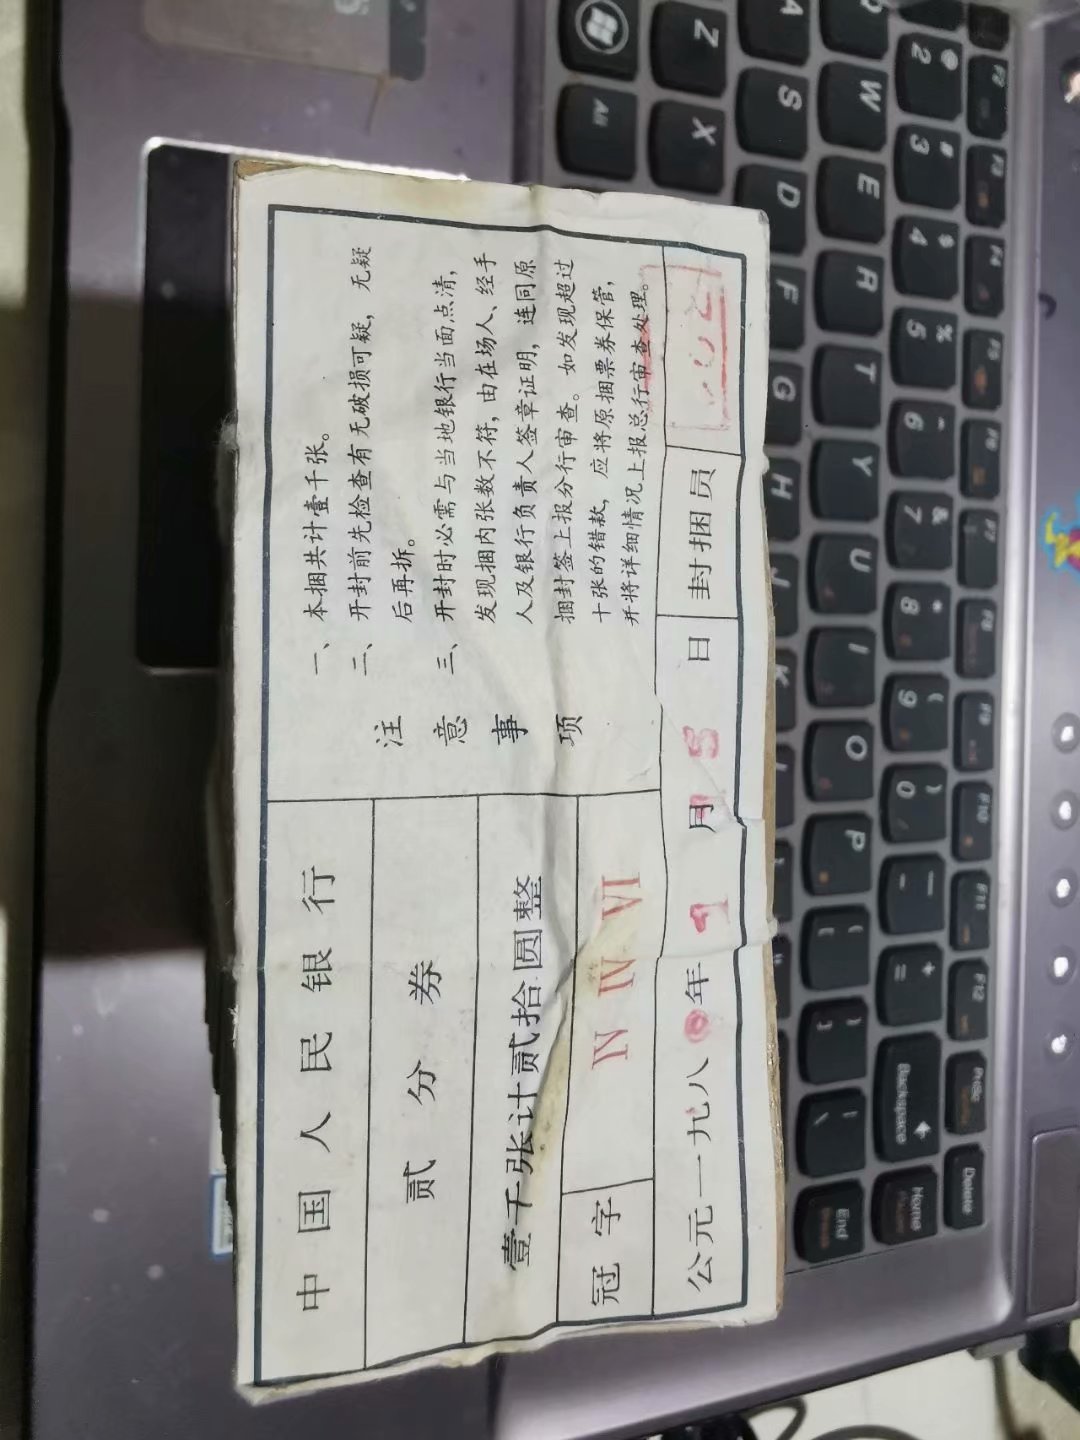 中国人民银行
贰分券
壹千张计贰拾圆整
冠字 IV IV VI
公元一九八0年9月5日
封捆员
注意事项
一、本捆共计壹千张。
二、开封前先检查有无破损可疑，无疑
后再拆。
三、开封时必需与当地银行当面点清，
发现捆内张数不符，由在场人、经手
人及银行负责人签章证明，连同原
捆封签上报分行审查。如发现超过
十张的错款，应将原捆票券保管，
并将详细情况上报总行审查处理。
F2
F3
F4
F5
F6
F7
F8
F9
F10
F11
F12
PrtSc
Delete
@ 2
# 3
$ 4
% 5
6
& 7
* 8
( 9
) 0
+ =
Backspace
Home
Q
W
E
R
T
Y
U
I
O
P
End
A
S
D
F
G
H
J
K
Z
X
Alt